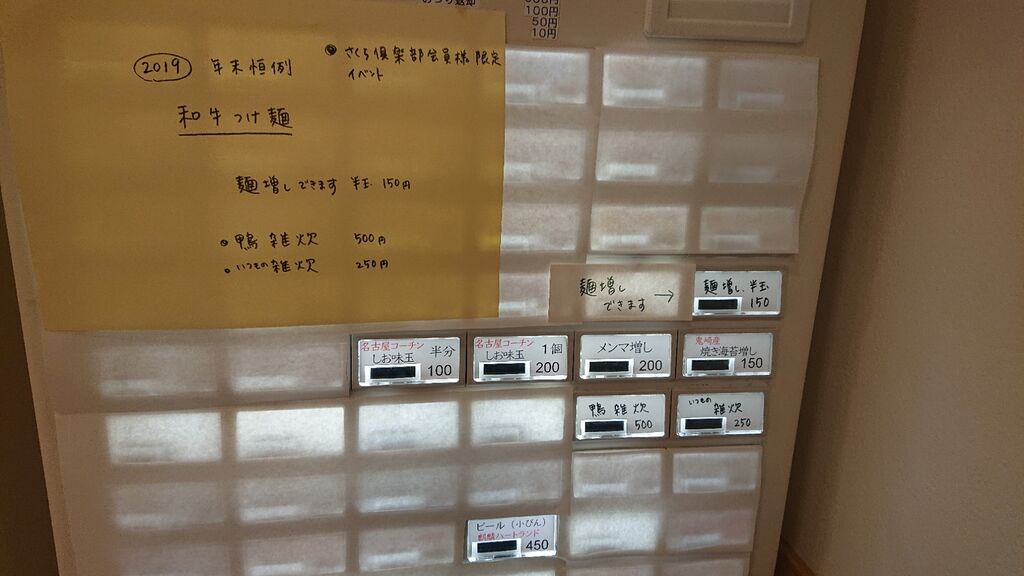 おつり返却
100円
50円
10円
2019 年末恒例
・さくら倶楽部会員様限定
イベント
和牛つけ麺
麺増しできます 半玉 150円
・鴨雑炊 500円
・いつもの雑炊 250円
麺増し
できます →
麺増し 半玉
150
名古屋コーチン
しお味玉 半分
100
名古屋コーチン
しお味玉 1個
200
メンマ増し
200
鬼崎産
焼き海苔増し
150
鴨雑炊
500
いつもの
雑炊
250
ビール(小びん)
麒麟ハートランド
450